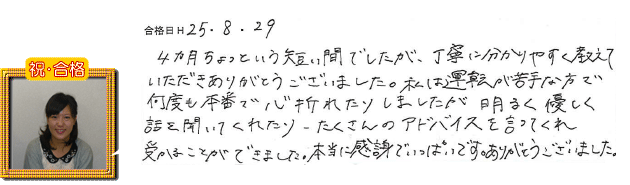 合格日 H 25.8.29
祝・合格
4カ月ちょっという短い間でしたが、丁寧に分かりやすく教えて
いただきありがとうございました。私は運転が苦手な方で
何度も本番で心折れたりしましたが明るく優しく
話を聞いてくれたりーたくさんのアドバイスを言ってくれ
受かることができました。本当に感謝でいっぱいです。ありがとうございました。